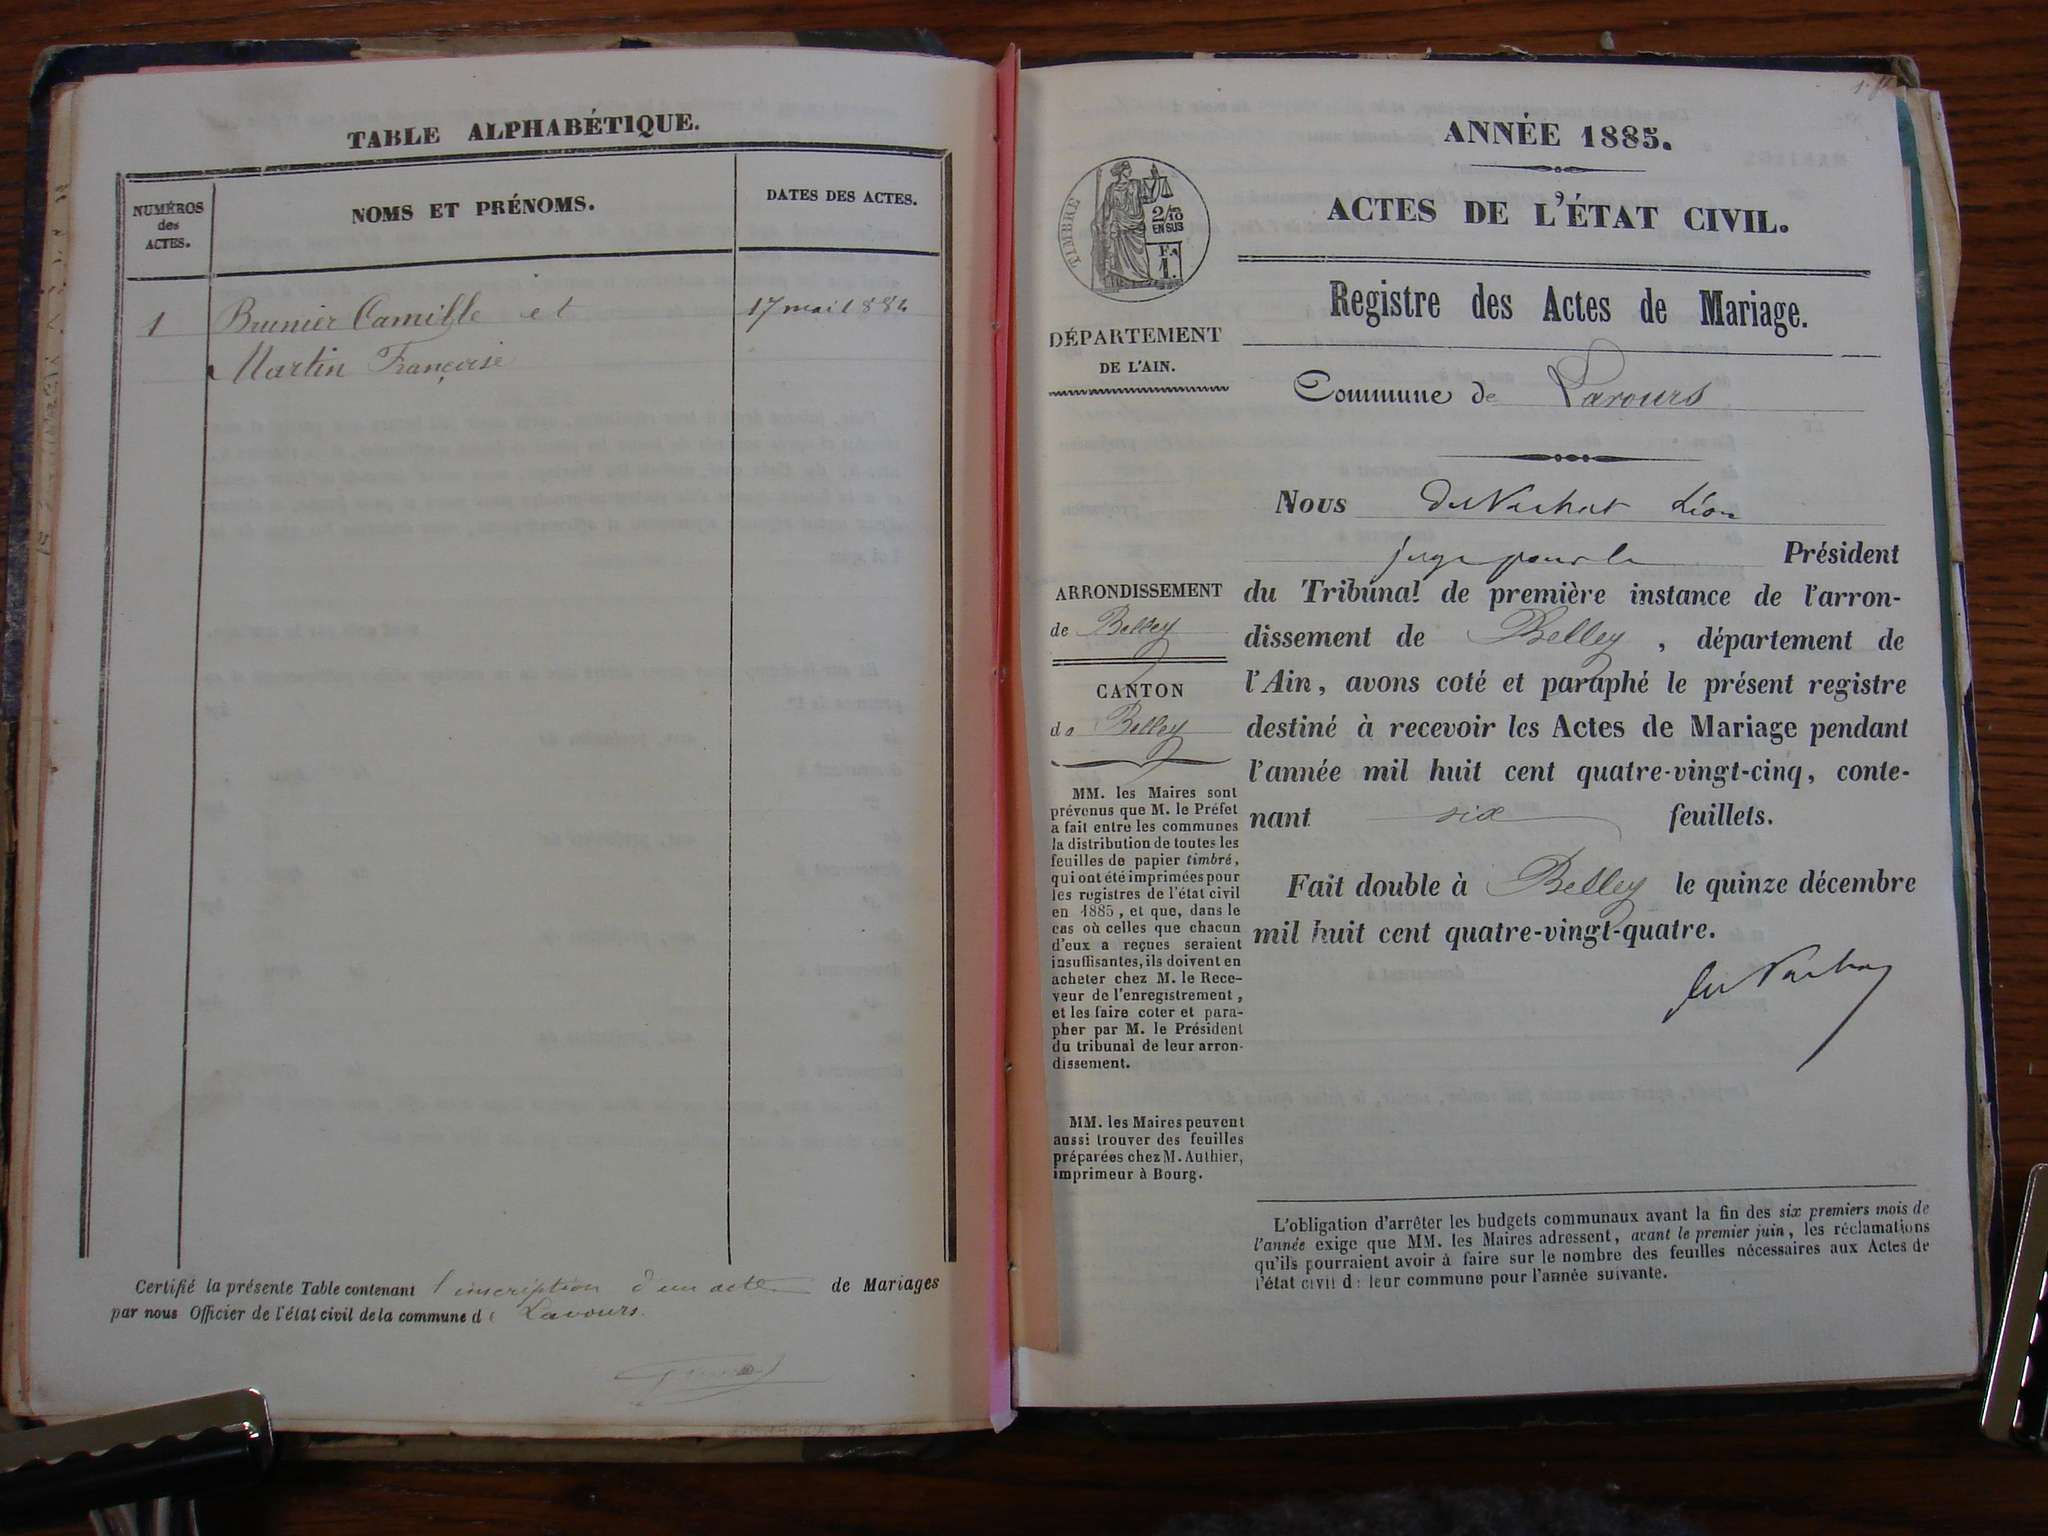 TABLE ALPHABÉTIQUE.
NUMÉROS
des
ACTES.
NOMS ET PRÉNOMS.
DATES DES ACTES.
1 Brunier Camille et 17 mai 1884
Martin Françoise
Certifié la présente Table contenant l'inscription d'un acte de Mariages
par nous Officier de l'état civil de la commune de Lavours.
ANNÉE 1885.
ACTES DE L'ÉTAT CIVIL.
TIMBRE
2/10
EN SUS
F.
1.
Registre des Actes de Mariage.
DÉPARTEMENT
DE L'AIN.
Commune de Lavours
Nous Léon
juge pour le Président
du Tribunal de première instance de l'arron-
dissement de Belley, département de
l'Ain, avons coté et paraphé le présent registre
destiné à recevoir les Actes de Mariage pendant
l'année mil huit cent quatre-vingt-cinq, conte-
nant six feuillets.
Fait double à Belley le quinze décembre
mil huit cent quatre-vingt-quatre.
ARRONDISSEMENT
de Belley
CANTON
de Belley
MM. les Maires sont
prévenus que M. le Préfet
a fait entre les communes
la distribution de toutes les
feuilles de papier timbré,
qui ont été imprimées pour
les registres de l'état civil
en 1885, et que, dans le
cas où celles que chacun
d'eux a reçues seraient
insuffisantes, ils doivent en
acheter chez M. le Rece-
veur de l'enregistrement,
et les faire coter et para-
pher par M. le Président
du tribunal de leur arron-
dissement.
MM. les Maires peuvent
aussi trouver des feuilles
préparées chez M. Authier,
imprimeur à Bourg.
L'obligation d'arrêter les budgets communaux avant la fin des six premiers mois de
l'année exige que MM. les Maires adressent, avant le premier juin, les réclamations
qu'ils pourraient avoir à faire sur le nombre des feuilles nécessaires aux Actes de
l'état civil d: leur commune pour l'année suivante.